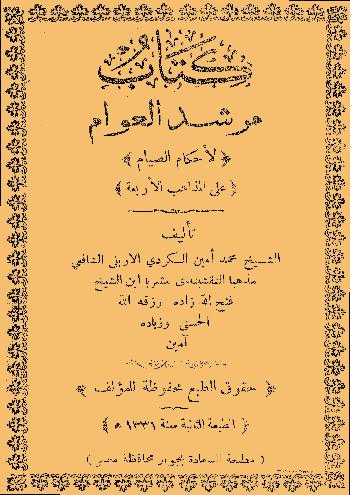 كتاب
مرشد العوام
﴿ لأحكام الصيام ﴾
﴿ على المذاهب الأربعة ﴾
تأليف
الشيخ محمد أمين الكردي الاربلي الشافعي
مذهبا النقشبندى مشربا ابن الشيخ
فتح الله زاده رزقه الله
الحسنى وزياده
آمين
﴿ حقوق الطبع محفوظة للمؤلف ﴾
﴿ الطبعة الثانية سنة ١٣٣١ ه ﴾
( مطبعة السعادة بجوار محافظة مصر )